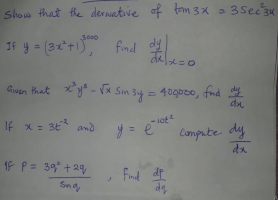 Show that the derivative of tan 3x = 3 Sec² 3x
If y = (3x²+1)³⁰⁰⁰, find dy/dx |x=0
Given that x³y⁸ - √x Sin 3y = 400000, find dy/dx
If x = 3t⁻² and y = e⁻¹⁰ᵗ² compute dy/dx
If P = 3q²+2q / Sin q, find dp/dq